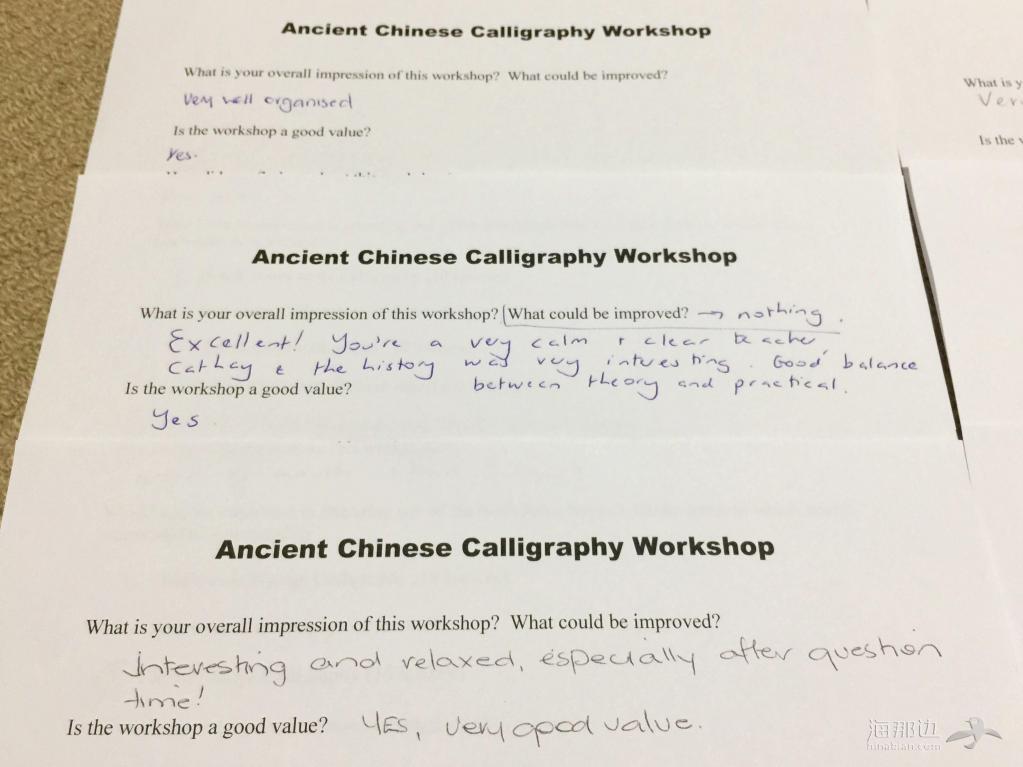 Ancient Chinese Calligraphy Workshop
What is your overall impression of this workshop? What could be improved?
Very well organised
Is the workshop a good value?
Yes.
What is y
Ver
Is the
Ancient Chinese Calligraphy Workshop
What is your overall impression of this workshop? What could be improved? → nothing.
Excellent! You're a very calm + clear teacher,
Cathay & the history was very interesting. Good balance
between theory and practical.
Is the workshop a good value?
Yes
Ancient Chinese Calligraphy Workshop
What is your overall impression of this workshop? What could be improved?
Interesting and relaxed, especially after question
time!
Is the workshop a good value? YES, very good value.
海那边
hinabian.com